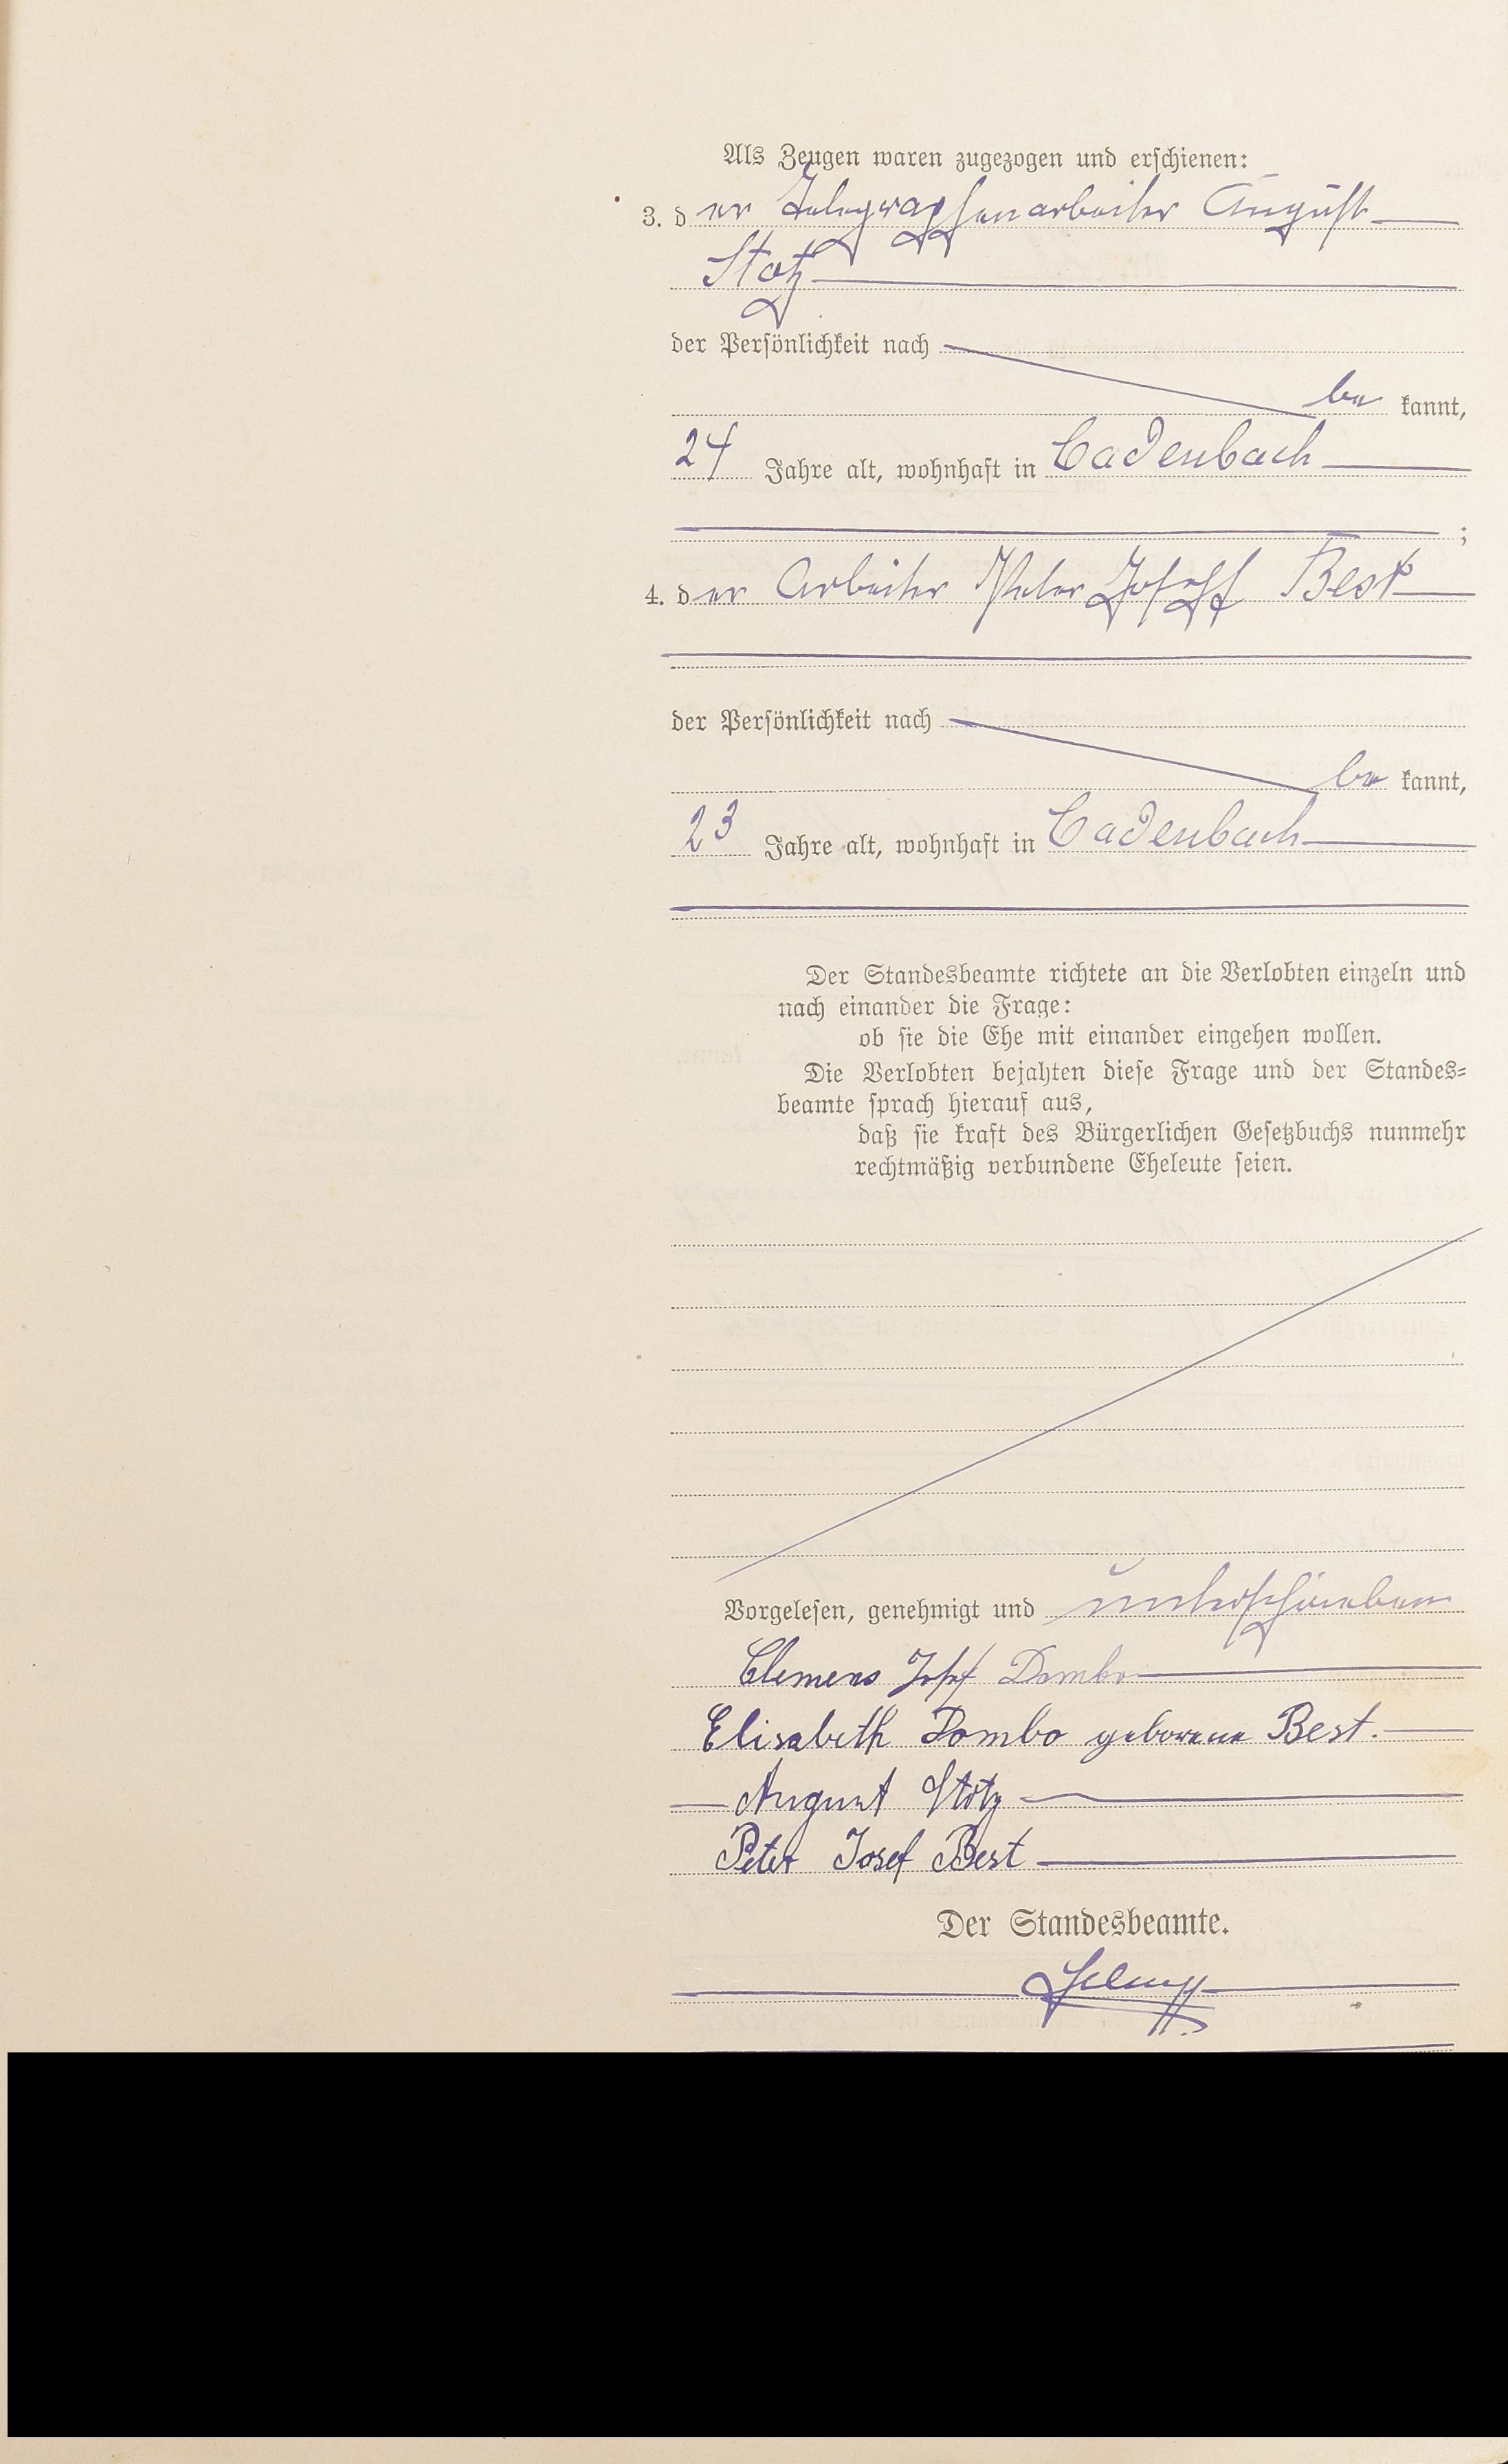 Als Zeugen waren zugezogen und erschienen:
3. der Telegraphenarbeiter August
Stotz
der Persönlichkeit nach
be kannt,
24 Jahre alt, wohnhaft in Cadenbach
;
4. der Arbeiter Peter Joseph Best
der Persönlichkeit nach
be kannt,
23 Jahre alt, wohnhaft in Cadenbach
Der Standesbeamte richtete an die Verlobten einzeln und
nach einander die Frage:
ob sie die Ehe mit einander eingehen wollen.
Die Verlobten bejahten diese Frage und der Standes=
beamte sprach hierauf aus,
daß sie kraft des Bürgerlichen Gesetzbuchs nunmehr
rechtmäßig verbundene Eheleute seien.
Vorgelesen, genehmigt und unterschrieben
Clemens Josef Dombo
Elisabeth Dombo geborene Best.
August Stotz
Peter Josef Best
Der Standesbeamte.